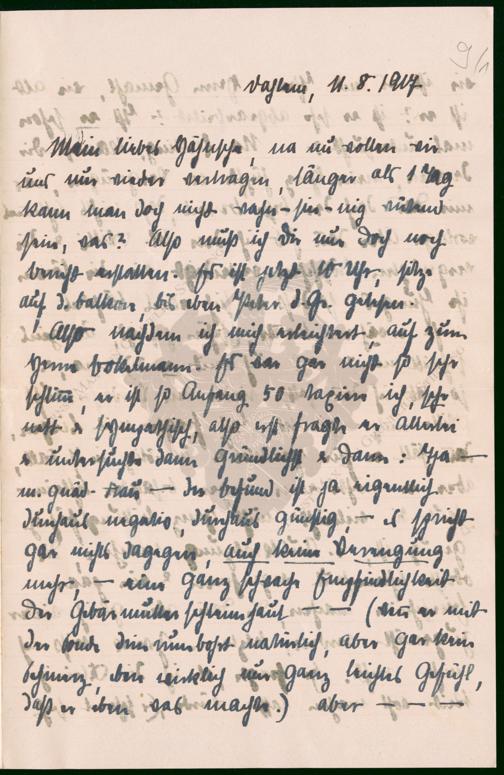 9/1
Dahlem, 11.8.1917
Mein liebes Hähnsche, na nu wollen wir
uns nur wieder vertragen, länger als 1 Tag
kann man doch nicht wahn-sin-nig wütend
sein, was? Also muß ich dir nun doch noch
bericht erstatten. Es ist jetzt 10 Uhr, sitze
auf d. balkon, bis eben Peter d. Gr. gelesen.
Also nachdem ich mich erleichtert, auf zum
Herrn Brökelmann. Es war gar nicht so sehr
schlimm, er ist so Anfang 50 taxiere ich, sehr
nett & sympathisch, also erst fragte er Allerlei
& untersuchte dann gründlichst & dann: Ja —
m. gnäd. Frau — der befund ist ja eigentlich
durchaus negativ, durchaus günstig, — es spricht
gar nichts dagegen, auch keine Verengung
mehr, — eine ganz schwache Empfindlichkeit
der Gebärmutterschleimhaut — — (wie er mit
der Sonde drin rumbohrt natürlich, aber gar kein
Schmerz, wirklich nur ganz leichtes Gefühl,
daß er eben was machte.) aber — — —